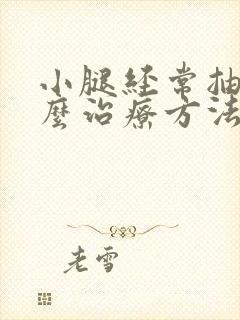 小腿经常抽
麼治療方法
老雪